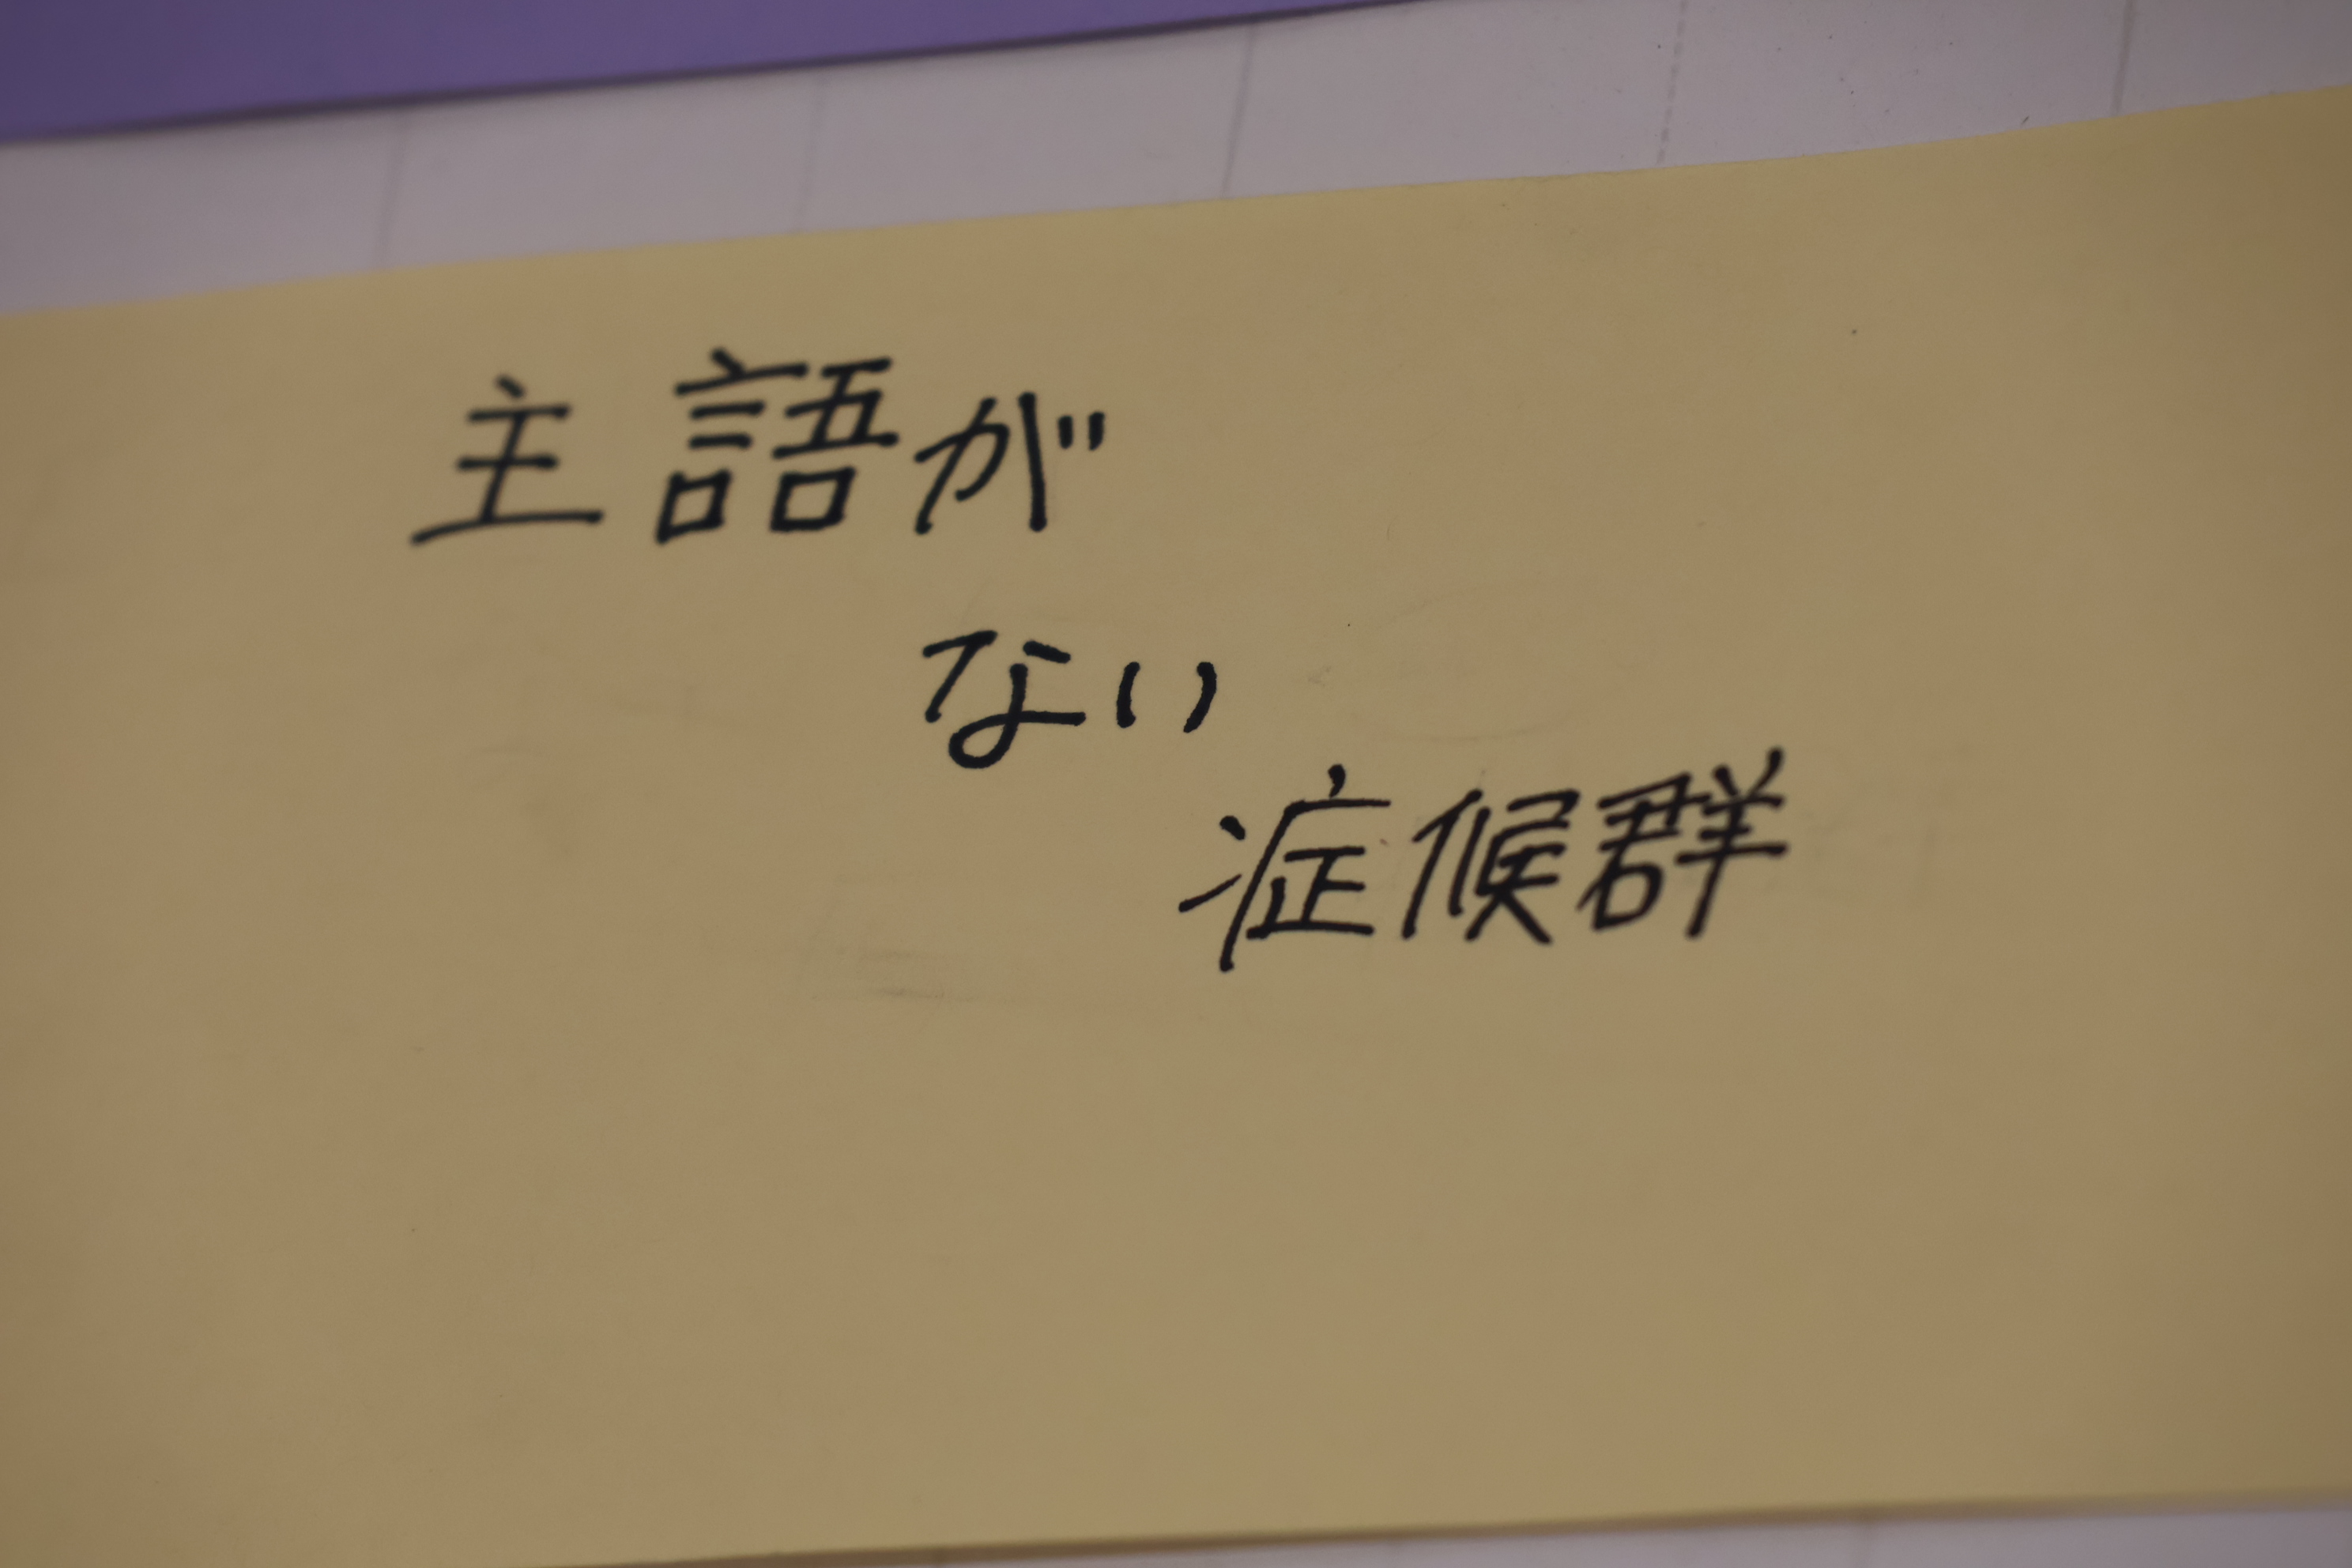 主語が
ない
症候群